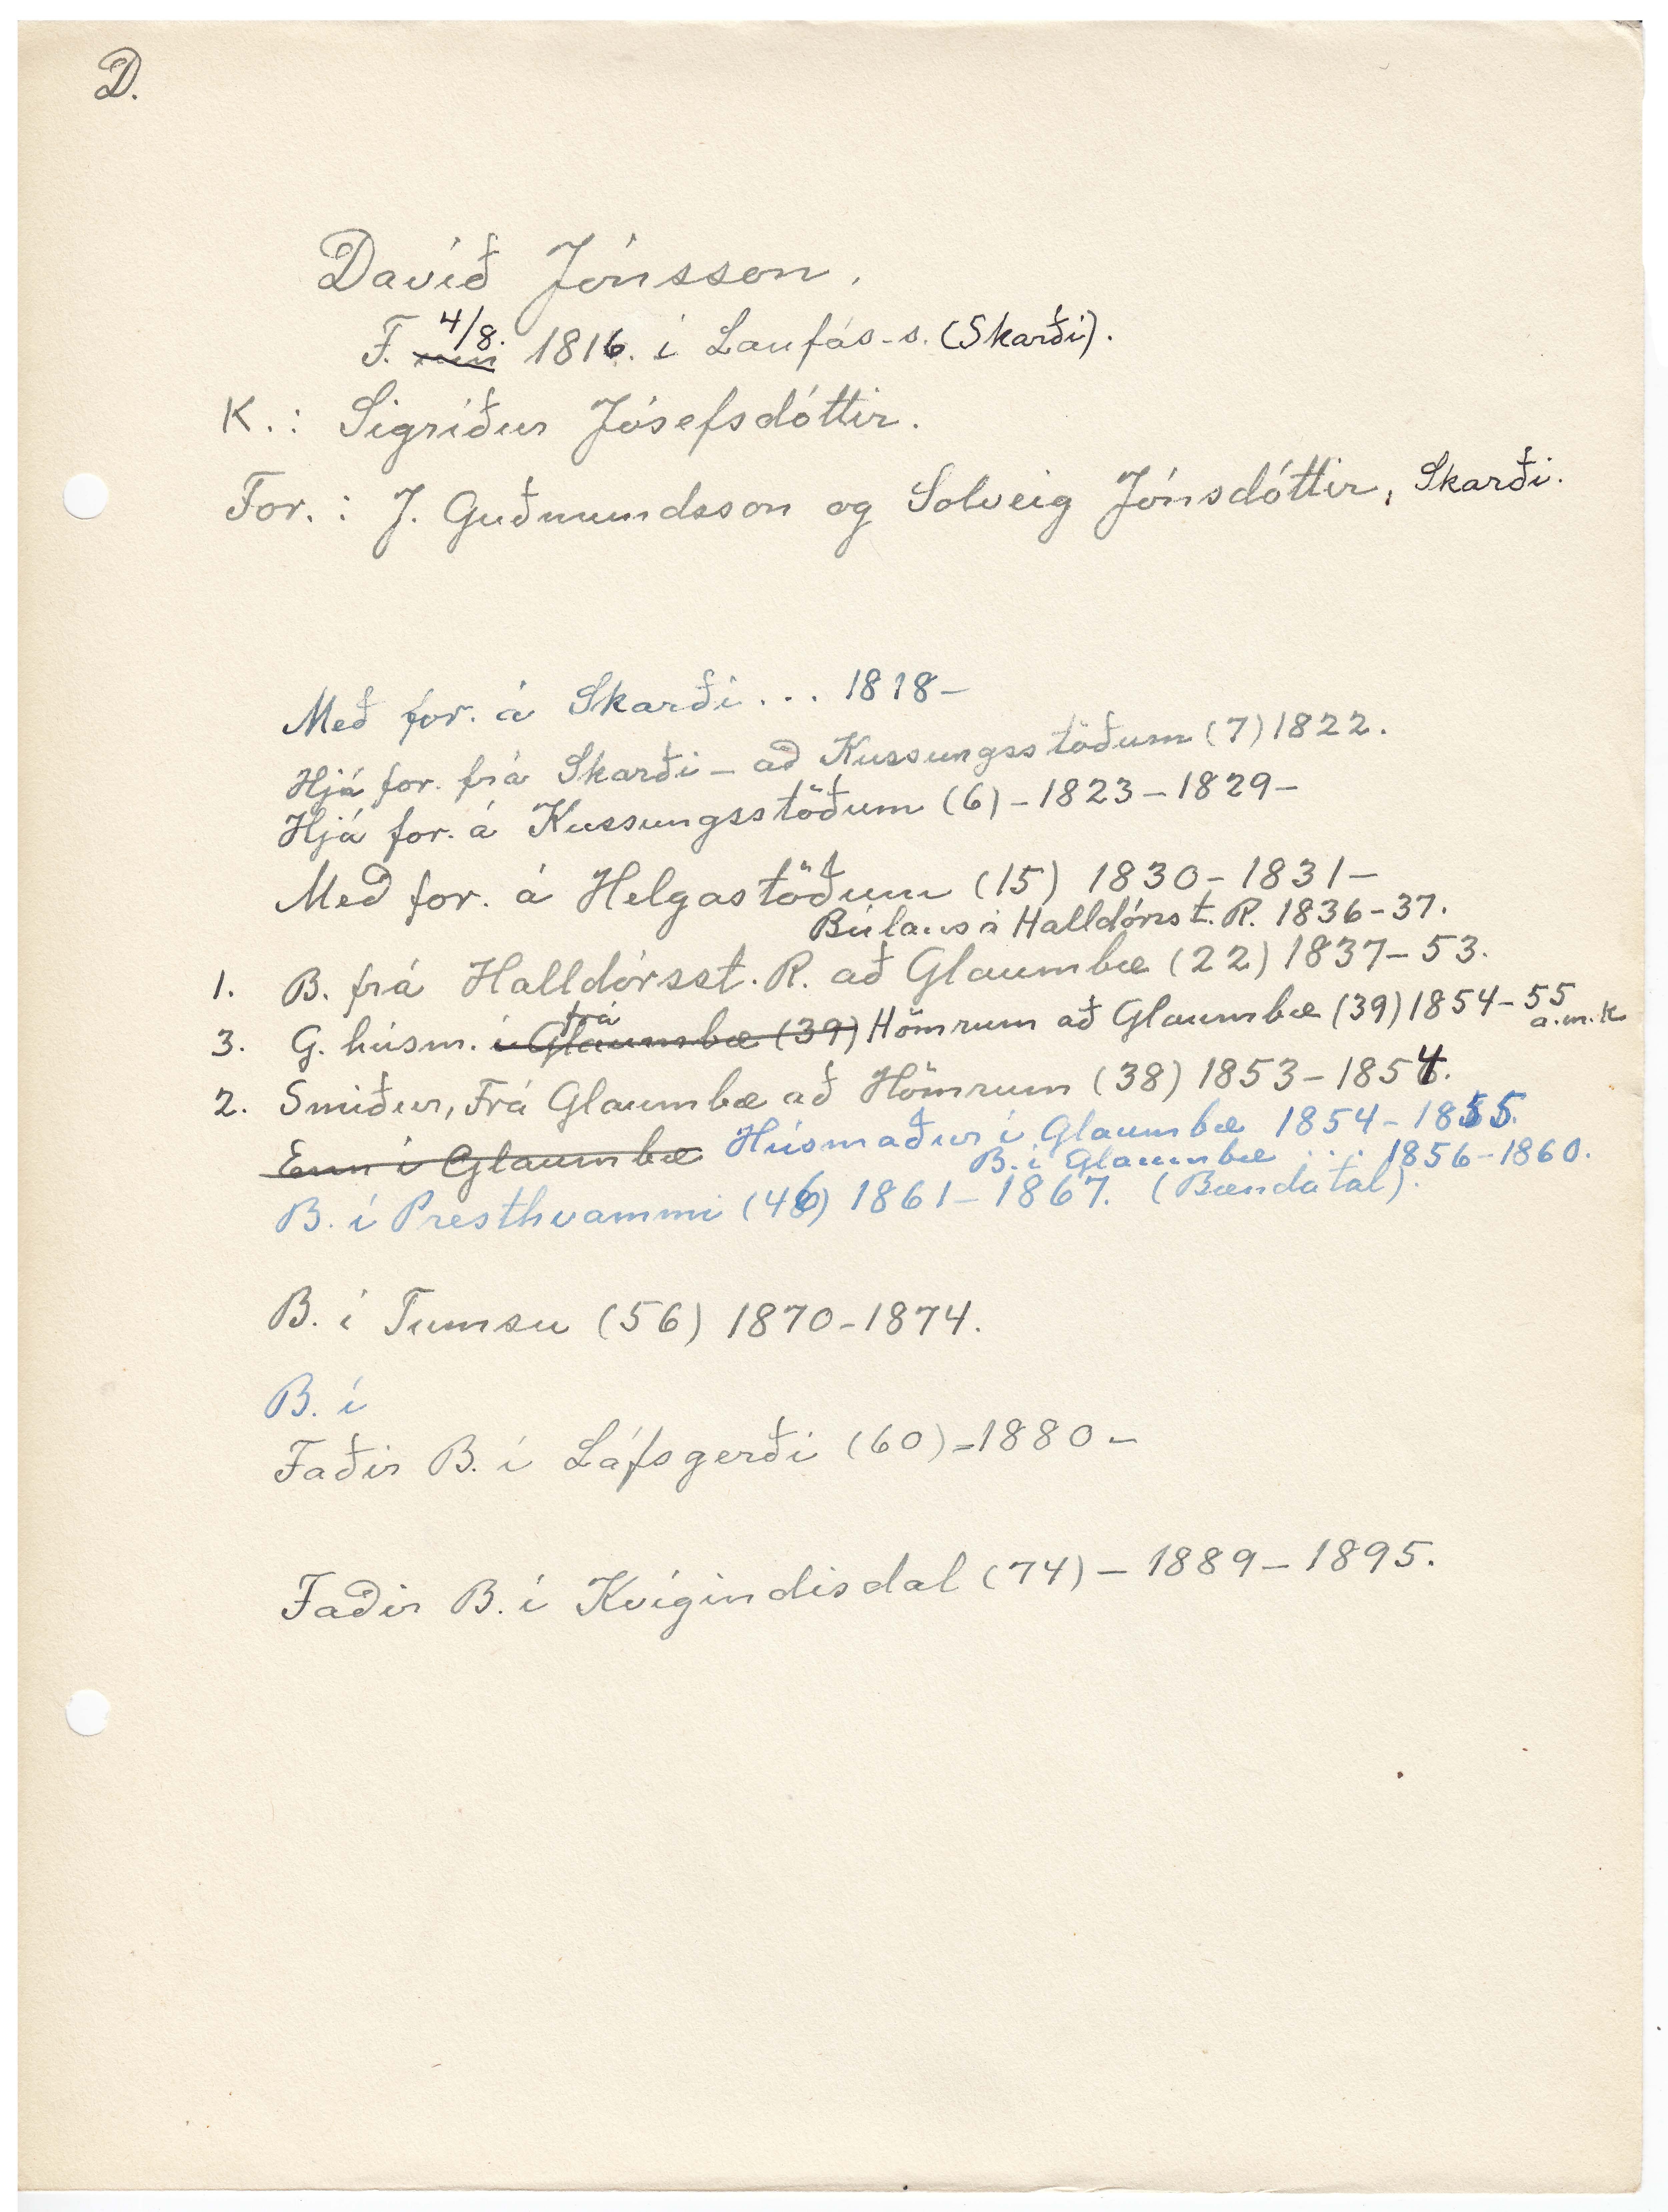 D.
Davíð Jónsson.
F. 4/8. 1816. í Laufás-s. (Skarði).
K.: Sigríður Jósefsdóttir.
For.: J. Guðmundsson og Solveig Jónsdóttir, Skarði.
Með for. á Skarði ... 1818-
Hjá for. frá Skarði - að Kussungsstöðum (7) 1822.
Hjá for. á Kussungsstöðum (6) - 1823 - 1829 -
Með for. á Helgastöðum (15) 1830 - 1831 -
Búlaus á Halldórsst. R. 1836-37.
1. B. frá Halldórsst. R. að Glaumbæ (22) 1837-53.
3. G. húsm. í Glaumbæ (39) frá Hömrum að Glaumbæ (39) 1854-55 a.m.k.
2. Smiður, Frá Glaumbæ að Hömrum (38) 1853-1854.
Enn í Glaumbæ Húsmaður í Glaumbæ 1854-1855.
B. í Glaumbæ ... 1856-1860.
B. í Presthvammi (46) 1861-1867. (Bændatal).
B. í Tumsu (56) 1870-1874.
B. í
Faðir B. í Láfsgerði (60) -1880-
Faðir B. í Kvígindisdal (74) - 1889 - 1895.